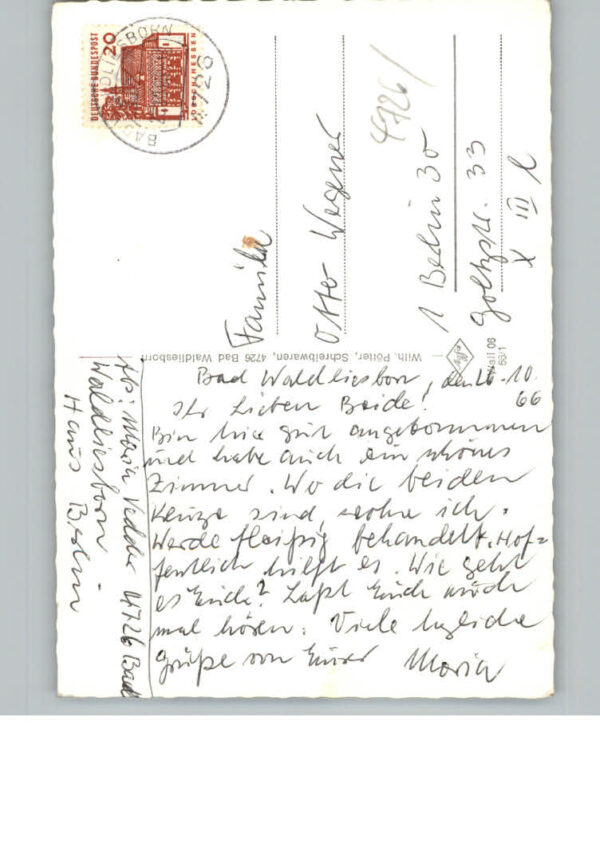 DEUTSCHE BUNDESPOST
20
LORSCH/HESSEN
4726
4726/
Familie
Otto Wegener
1 Berlin 30
Goltzstr. 33
III
Wilh. Pötter, Schreibwaren, 4726 Bad Waldliesborn
Agfa
66/1
Bad Waldliesborn, den 26.10.
66
Ihr Lieben Beide!
Bin hier gut angekommen
und habe auch ein schönes
Zimmer. Wo die beiden
Kreuze sind, wohne ich.
Werde fleißig behandelt. Hof=
fentlich hilft es. Wie geht
es Euch? Laßt Euch auch
mal hören. Viele herzliche
Grüße von Eurer Maria
Abs: Maria 4726 Bad
Waldliesborn
Haus Berlin